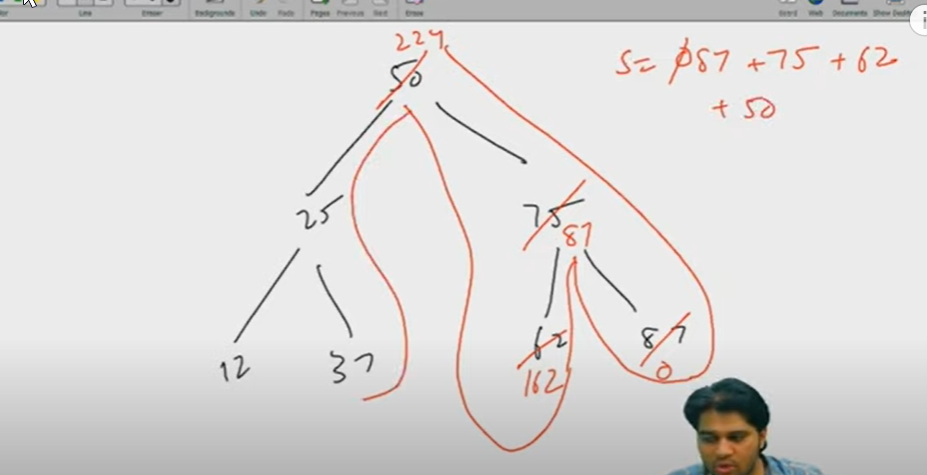 Line
Eraser
Backgrounds
Undo
Pages
Previous
Next
Erase
Board
Web
Documents
Show Desktop
224
50
S= 087 +75 + 62
+ 50
25
75
87
12
37
62
162
87
0